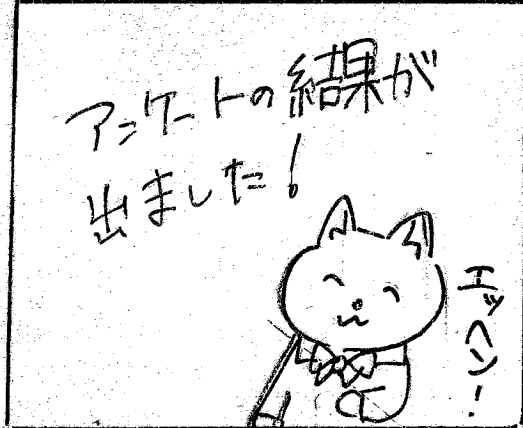 アンケートの結果が
出ました！
エッヘン！